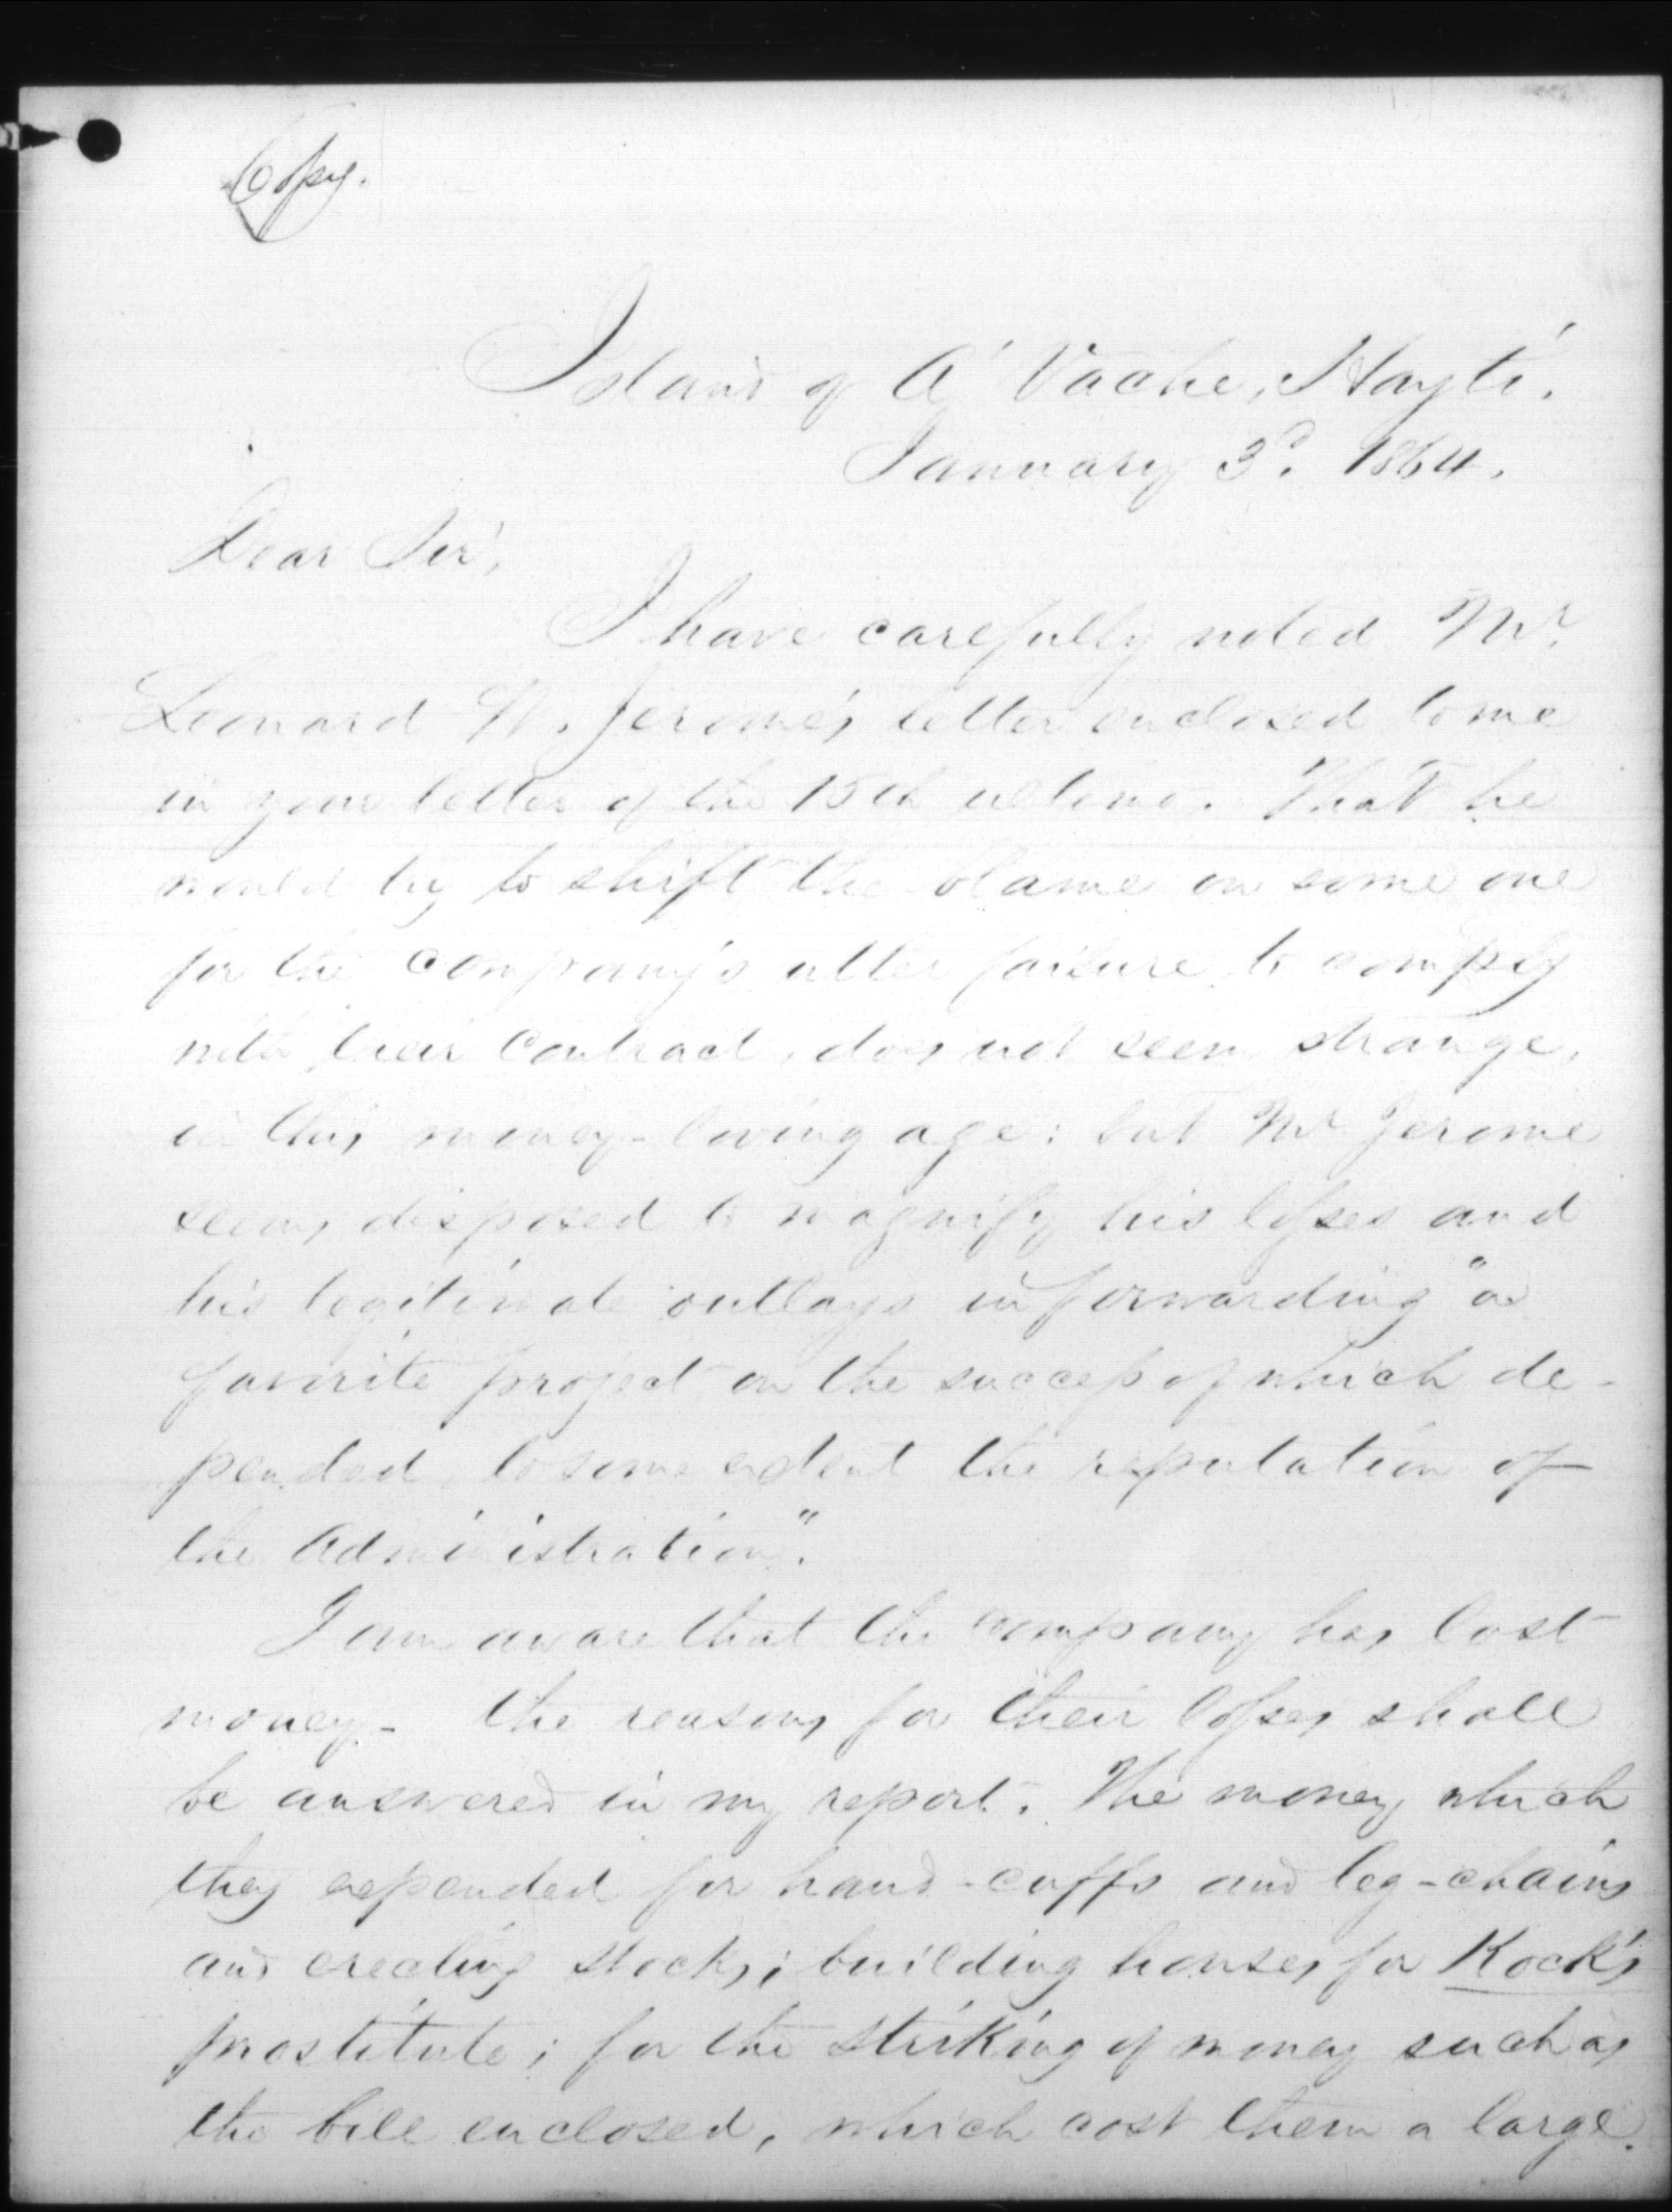 Copy.
Island of A' Vache, Hayti.
January 3d. 1864.
Dear Sir,
I have carefully noted Mr.
Leonard W. Jerome's letter enclosed to me
in your letter of the 15th ultimo. That he
would try to shift the blame on some one
for the company's utter failure to comply
with their contract, does not seem strange,
in this money-loving age: but Mr Jerome
seems disposed to magnify his losses and
his legitimate outlays in forwarding "a
favorite project on the success of which de-
pended, to some extent the reputation of
the Administration".
I am aware that the company has lost
money - the reasons for their losses shall
be answered in my report. The money which
they expended for hand-cuffs and leg-chains
and erecting stocks; building houses for Kock's
prostitute; for the striking of money such as
the bill enclosed, which cost them a large